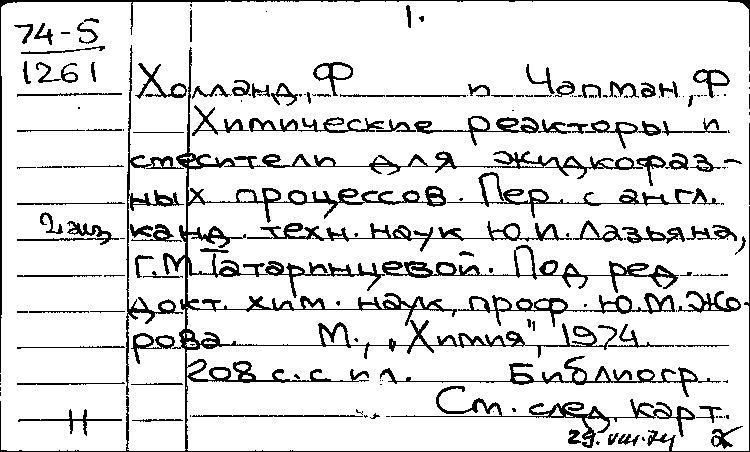 1.
74-5
1261
Холланд, Ф и Чапман, Ф
Химические реакторы и
смесители для жидкофаз-
ных процессов. Пер. с англ.
2 экз
канд. техн. наук Ю.И. Лазьяна,
Г.М. Татаринцевой. Под ред.
докт. хим. наук, проф. Ю.М. Жо-
рова. М., „Химия", 1974.
208 с. с ил. Библиогр.
См. след. карт.
11
29.VIII.74